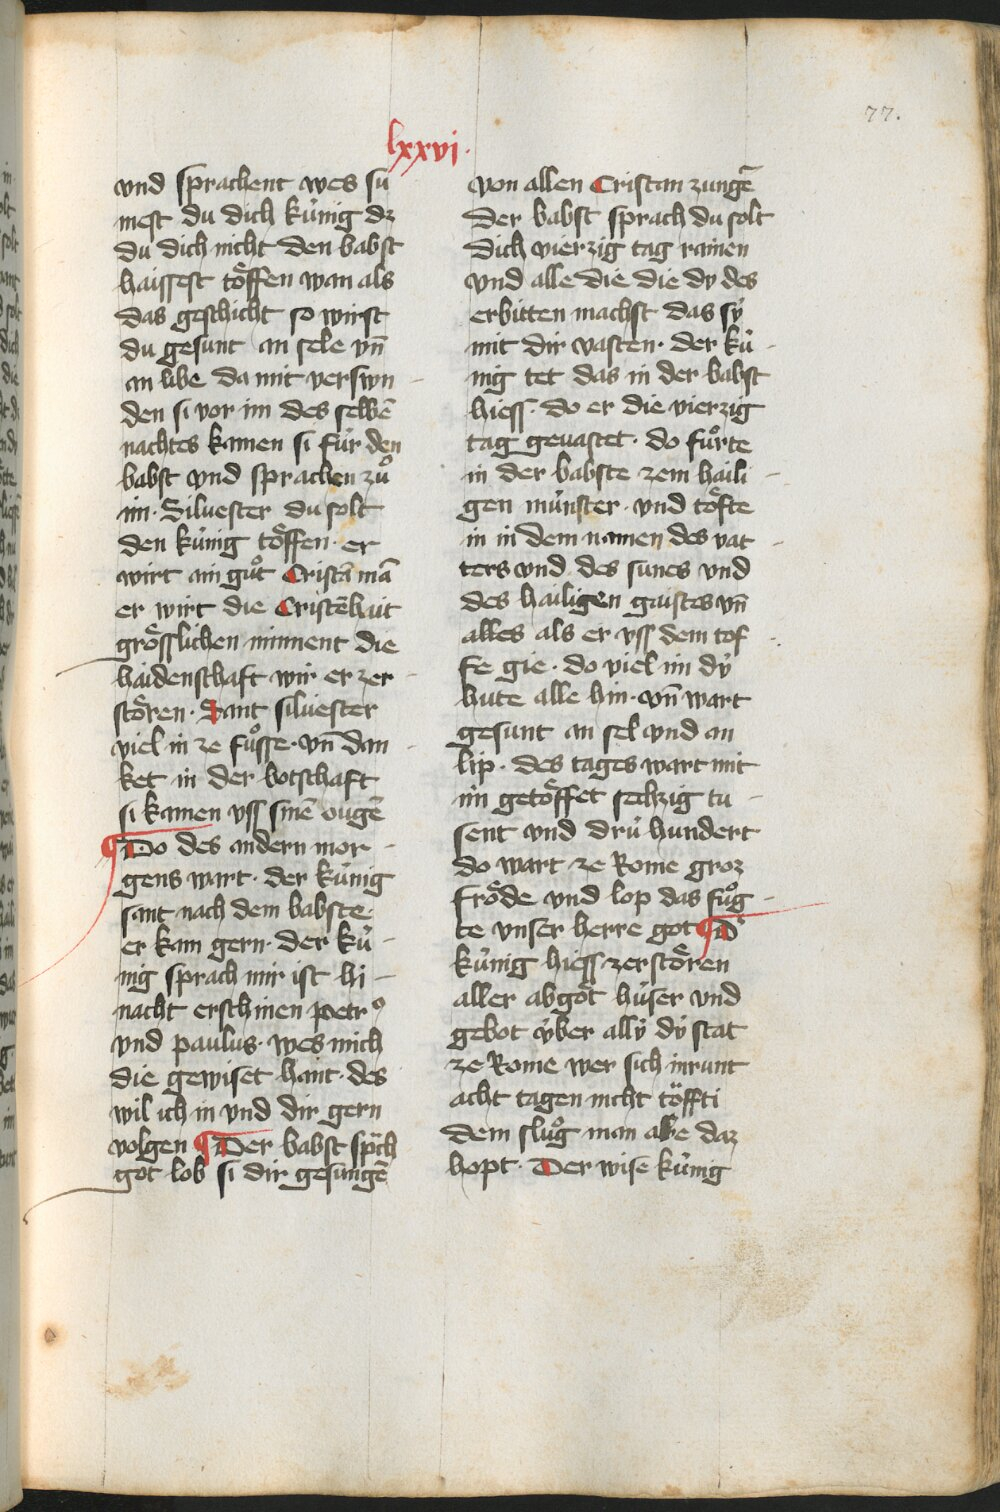 77.
lxxvi.
vnd sprachent wes su
mest du dich kúnig dz
du dich nicht den babst
haissest toͤffen wan als
das geschicht so wirst
du gesunt an sele vn̄
an libe da mit verswn
den si vor im des selbē
nachtes kamen si fúr den
babst vnd sprachen zuͦ
im. Siluester du solt
den kúnig toͤffen. er
wirt ain guͦt Cristā mā
er wirt die Cristēhait
groͤsslichen minnent die
haidenschaft wir er zer
stoͤren. Sant siluester
viel in ze fuͦsse. vn̄ dan
ket in der botschaft
si kamen vss sinē ougē
¶ Do des andern mor
gens wart. der kúnig
sant nach dem babste.
er kam gern. der kú
nig sprach mir ist hi
nacht erschinen petrꝰ
vnd paulus. wes mich
die gewiset hant. des
wil ich in vnd dir gern
volgen ¶ Der babst sp̄ch
got lob si dir gesungē
von allen Cristan zungē
Der babst sprach du solt
dich vierzig tag rainen
vnd alle die die dv des
erbitten machst das sy
mit dir vasten. der kú
nig tet das in der babst
hiess. do er die vierzig
tag geuastet. do fuͦrte
in der babste zem haili
gen múnster. vnd toͤfte
in in dem namen des vat
ters vnd des sunes vnd
des hailigen gaistes vn̄
alles als er vss dem tof
fe gie. do viel im dẏ
hute alle hin. vn̄ wart
gesunt an sel vnd an
lip. des tages wart mit
im getoͤffet sechzig tu
sent vnd drú hundert
do wart ze Rome groz
froͤde vnd lop das fuͦg
te vnser herre got ¶ D̕
kúnig hiess zerstoͤren
aller abgoͤt húser vnd
gebot v́ber allẏ dẏ stat
ze Rome wer sich inrunt
acht tagen nicht toͤffti
dem sluͦg man abe daz
hopt. Der wise kúnig